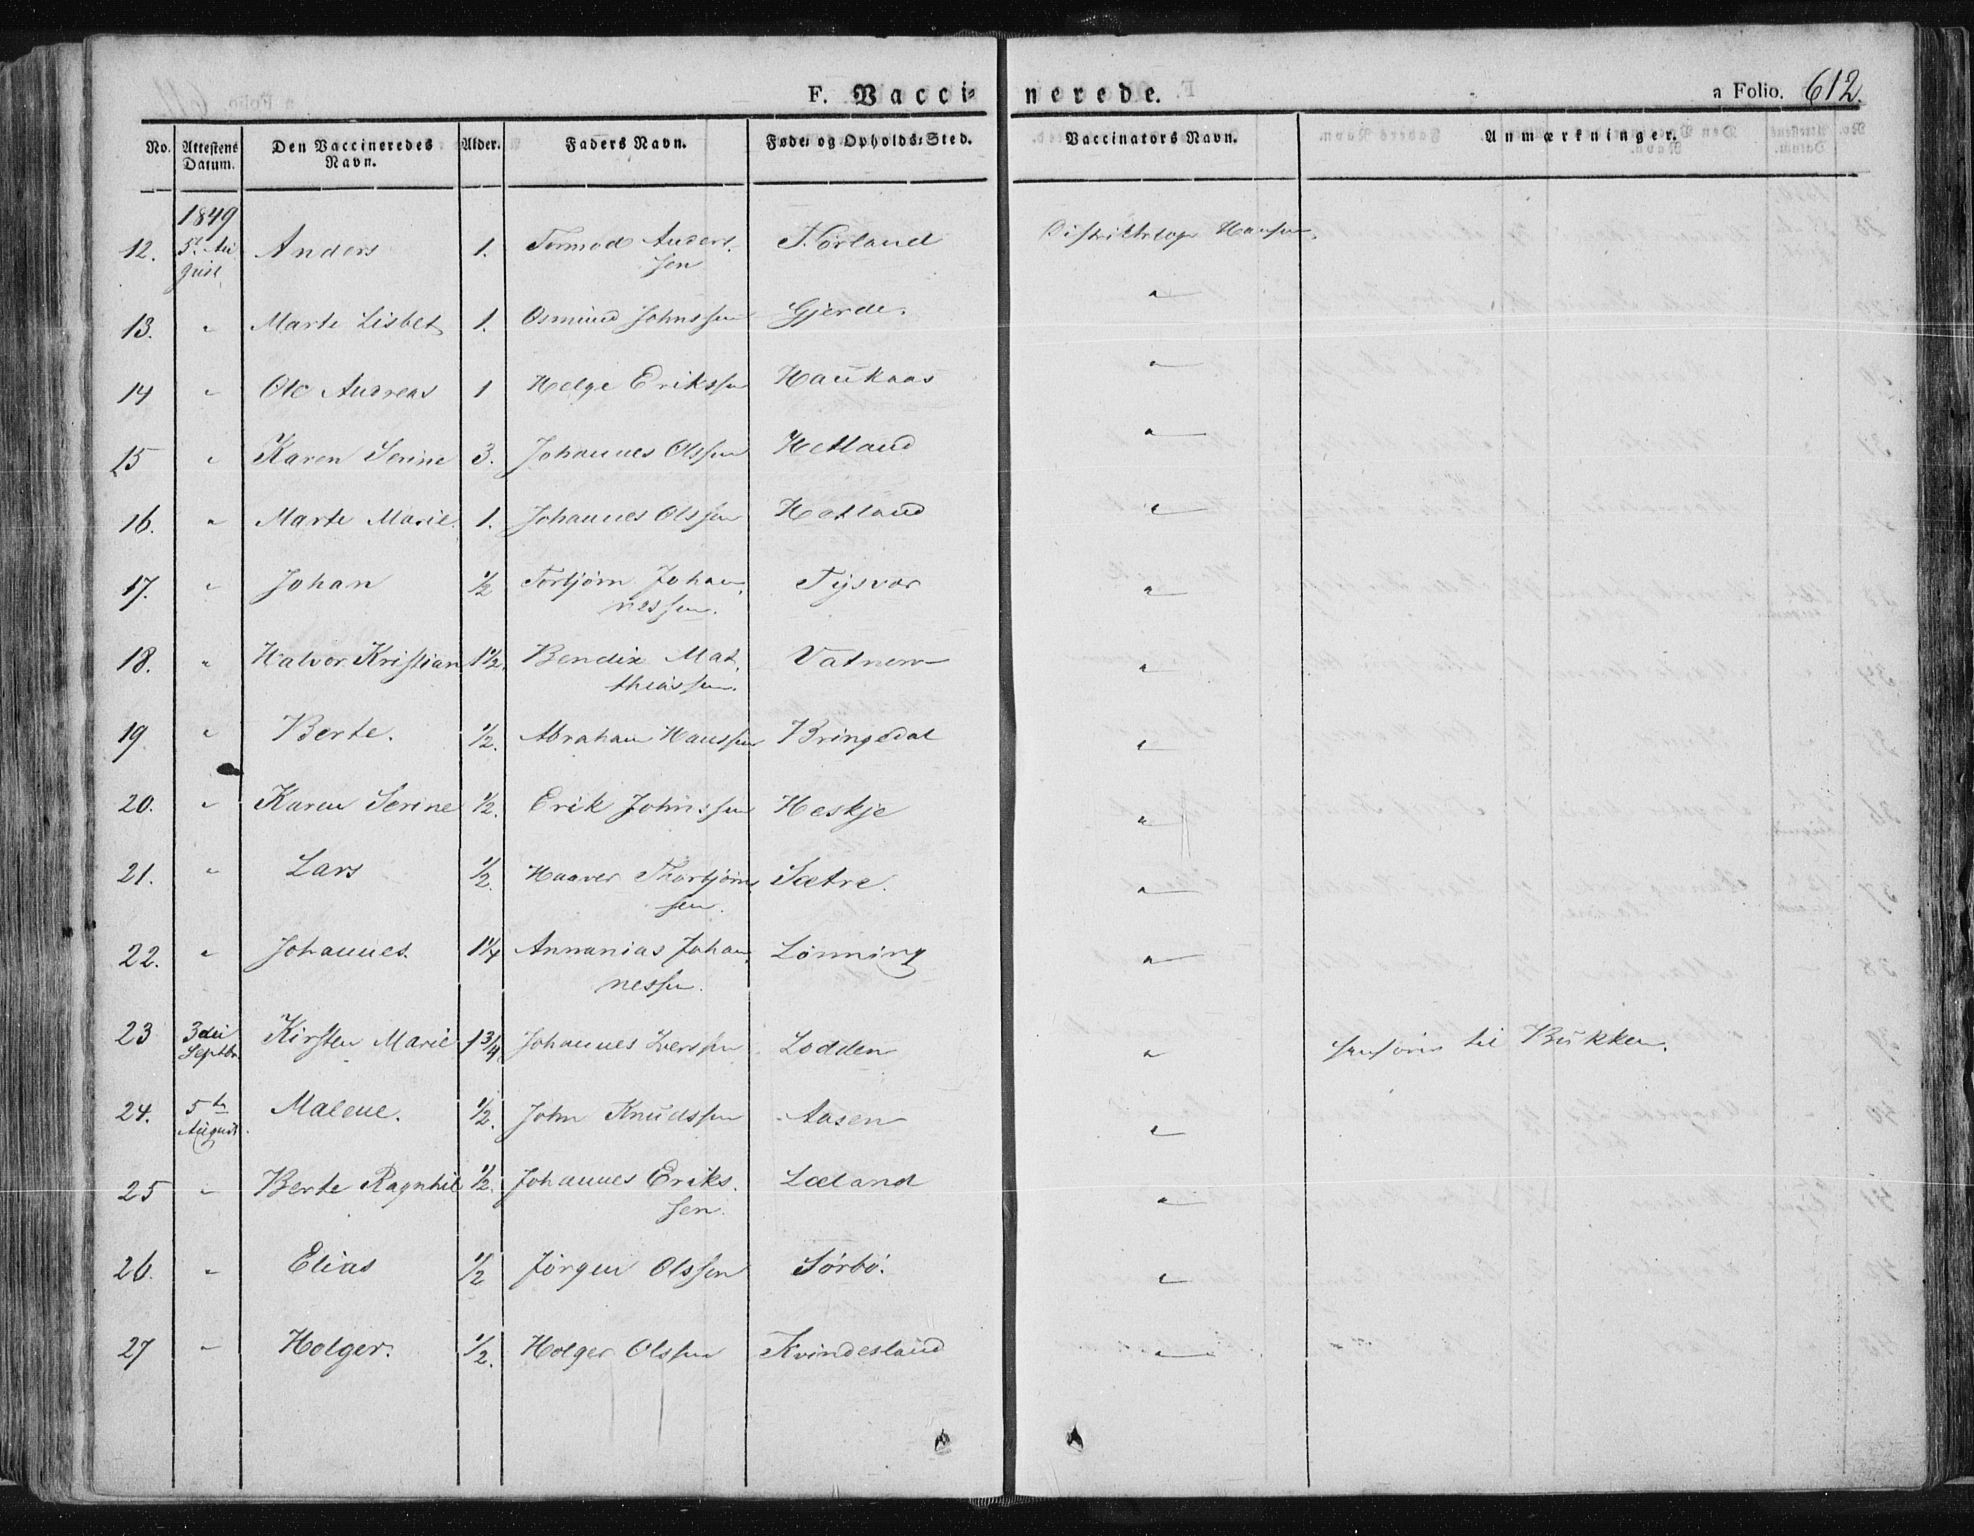 F. Vaccinerede. a Folio. 612.
No. Attestens Datum. Den Vaccineredes Navn. Alder. Faders Navn. Føde- og Opholds-Sted. Vaccinators Navn. Anmærkninger.
1849
12. 5te Au- Anders 1. Tormod Anders- Norland Hansen
gust, sen
13. " Marte Lisbet 1. Osmund Johnssen Gjerde. "
14 " Ole Andreas 1 Helge Erikssen Haukaas "
15 " Karen Serine 3. Johannes Olssen Hetland "
16. " Marte Marie 1. Johannes Olssen Hatland "
17. " Johan 1/2 Torbjørn Johan- Tysvær "
nessen.
18. " Halvor Kristian 1 1/2. Bendix Mat- Vatnem "
thiassen.
19. " Berte. 1/2. Abraham Hanssen Kringedal "
20. " Karen Serine 1/2. Erik Johnssen Heskje "
21. " Lars 1/2. Haaver Thorbjørn- Sætre. "
sen.
22. " Johannes. 1 1/4 Annanias Johan- Lønning "
nessen.
23 3die Kirsten Marie 1 3/4 Johannes Iverssen Lodden " til Bukken.
Septbr.
24. 5te Malene. 1/2. John Knudssen Aasen "
August.
25 " Berte Ragnhil 1/2. Johannes Eriks- Læland "
sen.
26. " Elias 1/2 Jörgen Olssen Sørbö. "
27 " Holger. 1/2. Holger Olssen Kvindesland "